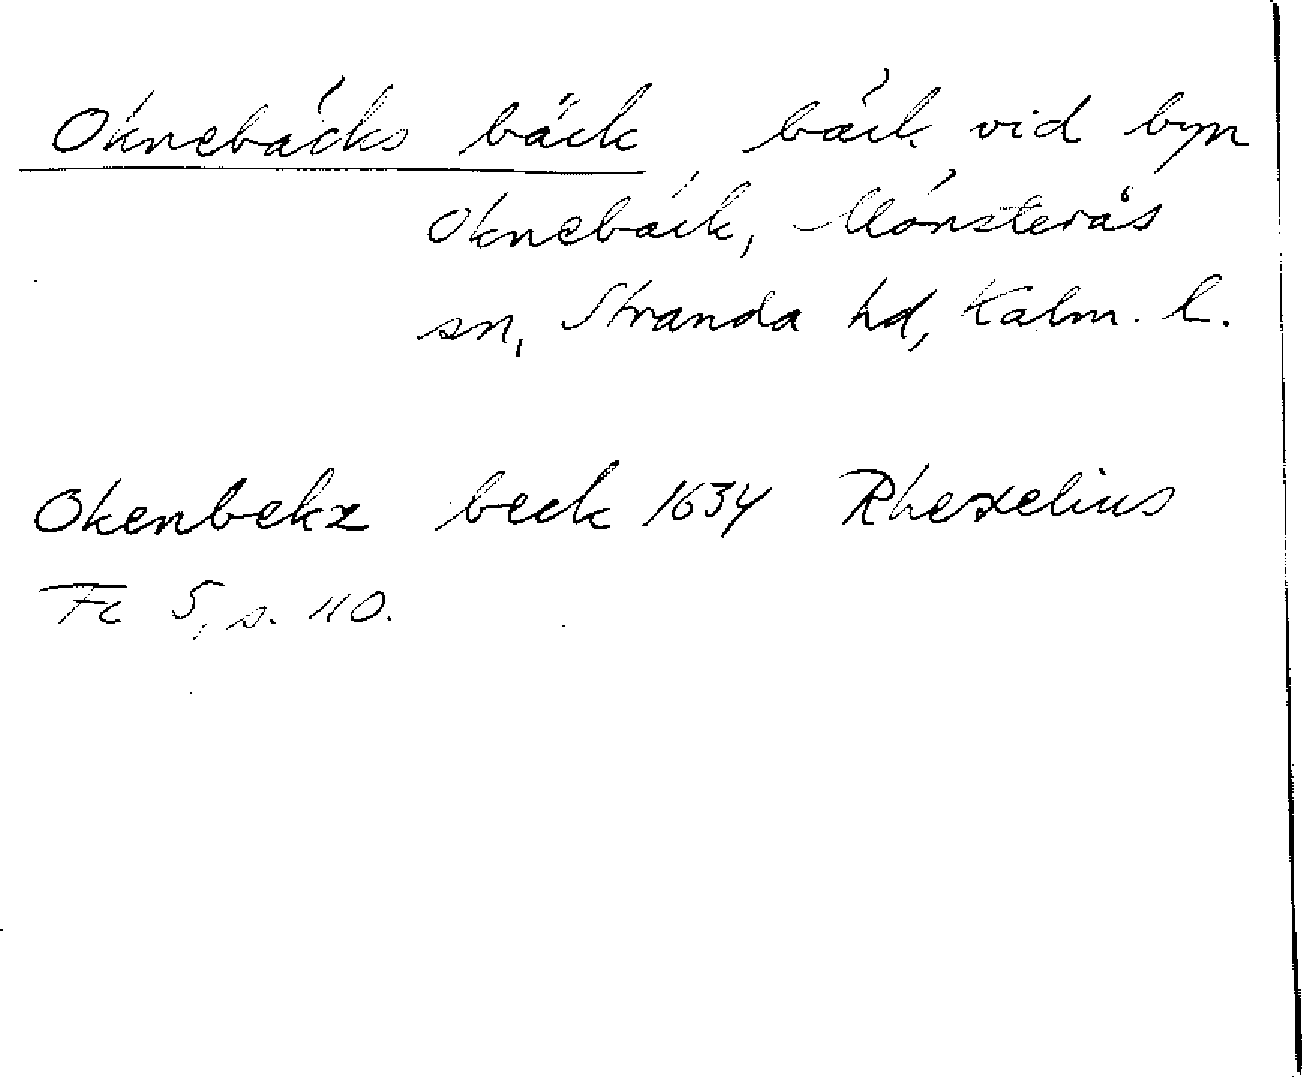 Oknebäcks bäck, bäck vid byn
Oknebäck, Mönsterås
sn, Stranda hd, Kalm. l.
Okenbekz beck 1634 Rhezelius
Fc 5, s. 110.